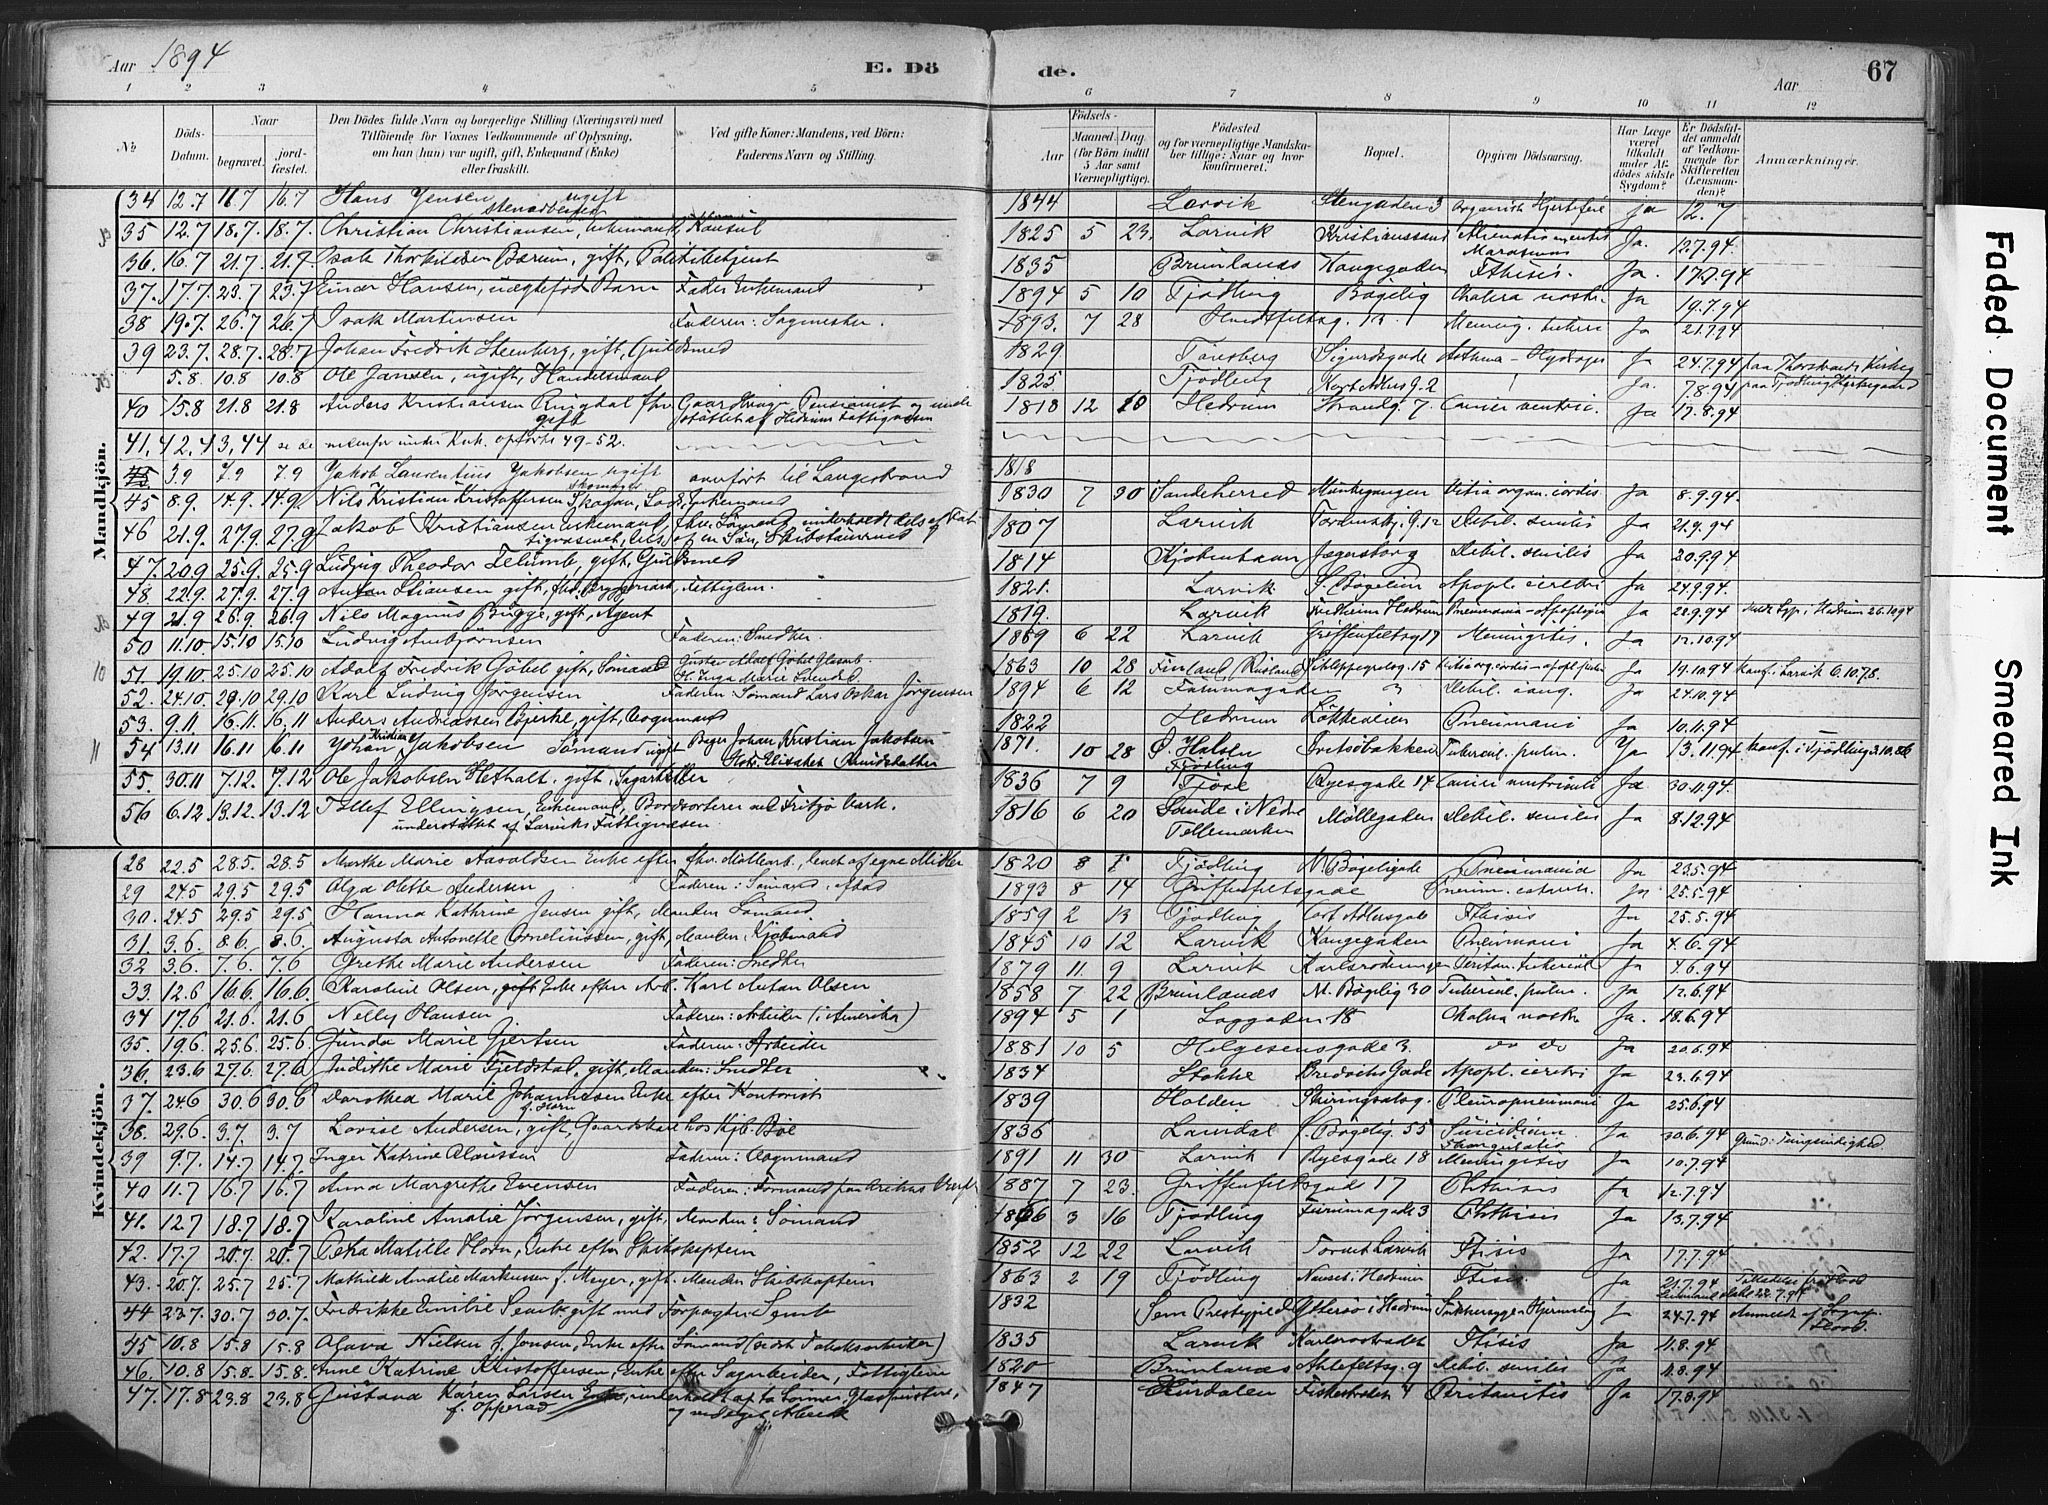 Aar 1894 E. Dö de. Aar 67
1 2 3 4 5 6 7 8 9 10 11 12
№ Döds-Datum. Naar begravet. jord-fæstet. Den Dödes fulde Navn og borgerlige Stilling (Næringsvei) med Tilföiende for Voxnes Vedkommende af Oplysning, om han (hun) var ugift, gift, Enkemand (Enke) eller fraskilt. Ved gifte Koner: Mandens, ved Börn: Faderens Navn og Stilling. Födsels- Aar Maaned. Dag. (for Börn indtil 5 Aar samt Værnepligtige). Födested og for værnepligtige Mandskaber tillige: Naar og hvor konfirmeret. Bopæl. Opgiven Dödsaarsag. Har Læge været tilkaldt under Afdödes sidste Sygdom? Er Dödsfaldet anmeldt af Vedkommende for Skifteretten (Lensmanden)? Anmærkninger.
Mandkjön.
34 12.7 16.7 16.7 Hans Jensen ugift 1844 Larvik Stengaden 3 Organisk Hjertefeil Ja 12.7
35 12.7 18.7. 18.7. Christian Christiansen, Enkemand, Konsul 1825 5 23. Larvik Kristianssand Ja. 12.7.94
36. 16.7 21.7. 21.7. Isak Thorkildsen Bærum, gift, Politibetjent 1835 Brunlanes Kongegaden Fthisis. Ja. 17.7.94
37. 17.7. 23.7 23.7 Einar Hansen, uægtefød Barn Fader Enkemand 1894 5 10 Tjødling Bøgelig Cholera nostr. Ja 19.7.94
38 19.7. 26.7 26.7 Isak Martinsen Faderen: Sagmester. 1893. 7 28 Hvidtfeltsg. 12. Mening. tuberc. Ja 21.7.94
39 23.7. 28.7. 28.7 Johan Fredrik Steenberg, gift, Guldsmed 1829 Tønsberg Sigurdsgade Asthma – Hydrops Ja 24.7.94 paa Thorstrands Kirkeg.
5.8. 10.8 10.8 Ole Jansen, ugift, Handelsmand 1825. Tjødling Kort Adlers G. 2 Ja. 7.8.94 paa Tjødling Kirkegaard
40 15.8 21.8 21.8 Anders Kristiansen Ringdal fhv. gift 1818 12 20 Hedrum Strandg. 7. Cancer ventric. Ja 17.8.94
41. 42. 43, 44 se de nedenfor under Kvk. opførte 49-52.
3.9 7.9 7.9 Jakob Laurentius Jakobsen ugift anført til Langestrand 1818
45 8.9. 14.9. 14.9. Nils Kristian Kristoffersen Skogan, Enkemand 1830 7 30 Sandeherred Munkegangen Vitia organ. cordis Ja 8.9.94.
46 21.9. 27.9. 27.9 Jakob Kristiansen Enkemand, fhv. Sømand, underholdt dels af Fattigvæsenet, dels af en Søn, Skibstømmermand 1807 Larvik Tordenskj. g. 12 Debil. senilis Ja 21.9.94
47. 20.9 25.9. 25.9 Ludvig Theodor Telumb, gift, Guldsmed 1814 Kjøbenhavn Jægersborg Debil. senilis Ja 20.9.94
48. 22.9. 27.9 27.9 Anton Stiansen gift, fhv. Bryggemand, Fattiglem. 1821. Larvik S. Bøgelien Apopl. cerebri Ja 24.9.94.
49 21.9 26.9 26.9 Nils Magnus Brugge, gift, Agent 1819. Larvik Fredheim Hedrum Pneumonia – Apoplexia Ja 22.9.94 Hedrum 26.10.94
50 11.10 15.10 15.10 Ludvig Ambjørnsen Faderen: Snedker. 1889 6 22 Larvik Griffenfeltsg 17 Meningitis. Ja 12.10.94
51. 19.10. 25.10 25.10 Adolf Fredrik Göbel gift, Sømand Gustav Adolf Göbel Glasarb. 1863 10 28 Finland (Rusland) Schleppegrelsg. 15 Vitia org. cordis – apopl. pulm. Ja 19.10.94 Konf. i Larvik 6.10.78.
52. 24.10. 29.10 29.10 Karl Ludvig Jørgensen Faderen Sømand Lars Oskar Jørgensen 1894 6 12 Fammegaden 3 Debil. cong. Ja 24.10.94
53. 9.11. 16.11. 16.11 Anders Andreassen Bjerke, gift, Vognmand 1822 Hedrum Løkkedeien Pneumoni Ja 10.11.94
54 13.11 16.11 16.11 Johan Kristian Jakobsen Sømand ugift Bager Johan Kristian Jakobsen 1871. 10 28 Ø. Halsen Tjødling Fritsøbakken Tubercul. pulm. Ja 13.11.94 Konf. i Tjødling 3.10.86
55. 30.11 7.12. 7.12 Ole Jakobsen Hethalt. gift. Sagarbeider 1836 7 9 Tjøse Ryesgade 14 Cancer ventriculi Ja 30.11.94
56 6.12 13.12. 13.12 Tollef Ellingsen, Enkemand, Bordsorterer ved Fritzø Værk. understøttet af Larviks Fattigvæsen. 1816 6 20 Sande i Nedre Tellemarken Møllegaden Debil. senilis Ja 8.12.94
Kvindekjön.
28 22.5 28.5 28.5 Marthe Marie Aasoldsen Enke efter fhv. Møllearb., levet af egne Midler 1820 8 7. Tjødling N. Bøgeligade Pneumonia Ja 23.5.94
29 24.5 29.5 29.5. Olga Olette Andersen Faderen: Sømand 1893 8 14 Griffenfeltsgade Pneum. catarrh. Ja 25.5.94
30. 24.5 29.5 29.5. Hanna Kathrine Jensen gift, Manden Sømand 1859 2 13 Tjødling Cort Adlersgade Fthisis Ja 25.5.94
31. 3.6. 8.6. 8.6. Augusta Antonette Corneliussen, gift, Manden: Kjøbmand 1845 10 12 Larvik Kongegaden Pneumoni Ja 4.6.94
32 3.6. 7.6. 7.6 Grethe Marie Andersen Faderen: Snedker 1879 11. 9 Larvik Karlsrodningen Periton. tubercul. Ja 4.6.94
33. 12.6 16.6. 16.6. Karoline Olsen, Enke efter Arb. Karl Anton Olsen 1858 7 22 Brunlanes N. Bøgelig 30 Tubercul. pulm. Ja 12.6.94
34 17.6 21.6. 21.6 Nelly Hansen Faderen: Arbeider (i Amerika) 1894 5 1 Laggaden 18 Cholera nostr. Ja. 18.6.94
35. 19.6. 25.6. 25.6 Gunda Marie Gjertsen Faderen: Arbeider 1881 10 5 Helgesensgade 3. do do Ja 20.6.94
36. 23.6 27.6. 27.6 Judithe Marie Fjeldstal, gift, Manden: Snedker 1834 Stokke Bredochs Gade Apopl. cerebri Ja 23.6.94
37. 24.6 30.6 30.6 Dorothea Marie Johannesen Enke efter Kontorist f. Horn 1839 Halden Skiringsalsg. Pleuropneumoni Ja 25.6.94
38. 29.6. 3.7. 3.7 Lovise Andersen, gift, Gaardskarl hos Kjb. Bøe 1836 Laurdal S. Bøgelig. 55 Suicidium Strangulatio Ja 30.6.94 Grund: Tungsindighed
39 9.7. 14.7 14.7. Inger Katrine Olaissen Faderen: Vognmand 1891 11 30 Larvik Ryesgade 18 Meningitis Ja 10.7.94
40 11.7 16.7 16.7. Anna Margrethe Evensen Faderen: Formand paa Archers Værft 1887 7 23. Griffenfeltsgade 17 Phthisis Ja 12.7.94
41. 12.7 18.7 18.7. Karoline Amalie Jørgensen, gift, Manden: Sømand 3 16 Tjødling Furumogade 3 Phthisis Ja 13.7.94
42. 17.7. 20.7 20.7. Petra Matilde Horn, Enke efter Skibskaptein 1852 12 22 Larvik Torvet Larvik Ftisis Ja 17.7.94
43. 20.7. 25.7 25.7 Mathilde Amalie Markussen f. Meyer, gift, Manden Skibskaptein 1863 2 19 Tjødling Nanset i Hedrum Ftisis Ja 21.7.94
44 23.7. 30.7 30.7. Fredrikke Emilie Semb gift med Forpagter Semb 1832 Sem Prestegjeld Ja 24.7.94 Anmeldt af Sogneprest Flood.
45 10.8 15.8 15.8 Olava Nielsen f. Jonsen, Enke efter Sømand (sidst Tobaksarbeider) 1835 Larvik Karlsrostrædet Ftisis Ja 11.8.94
46. 10.8 15.8. 15.8. Anne Katrine Kristoffersen, Enke efter Sagarbeider, Fattiglem 1820 Brunlanes Ahlefeltsg. 9 Debil. senilis Ja 11.8.94
47. 17.8 23.8 23.8 Gustava Karen Larsen f. Opperud 1847 Fiskestræden 4 Peritonitis Ja 17.8.94
Faded Document Smeared Ink